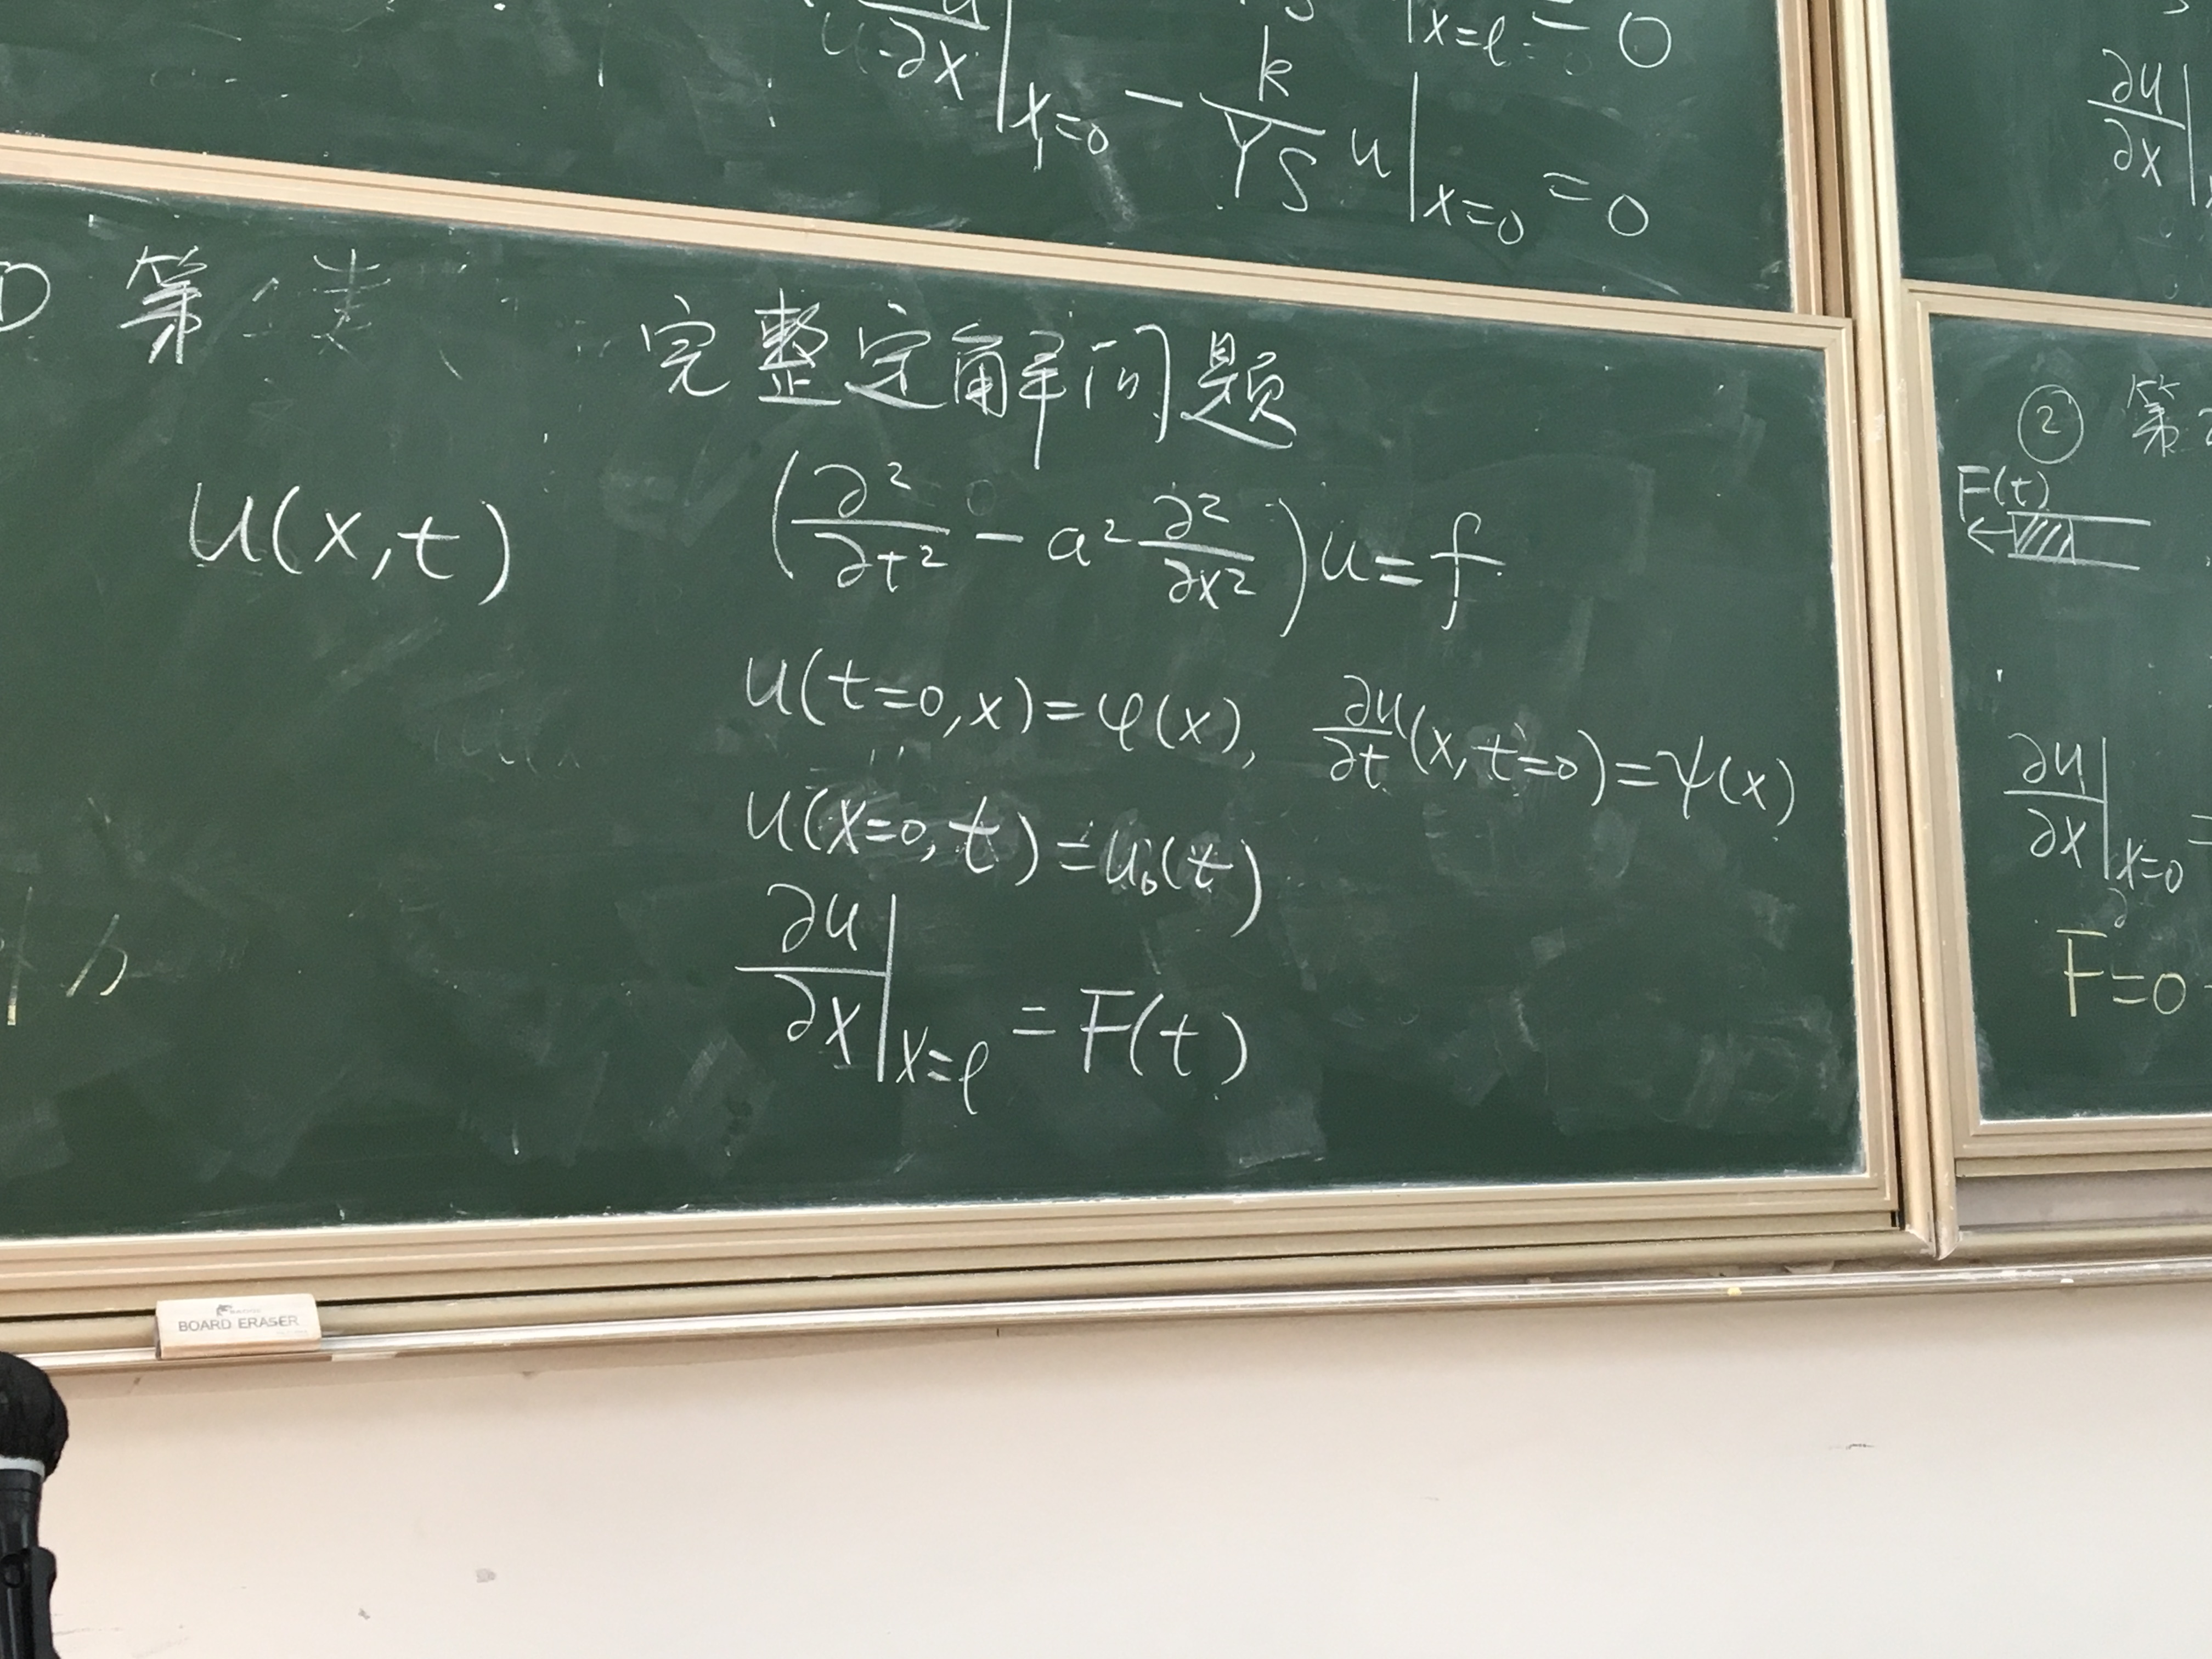 ∂x|x=0 - k/YS u|x=0 = 0
|x=ℓ = 0
∂u/∂x|
第一类
完整定解问题
u(x,t)
(∂²/∂t² - a² ∂²/∂x²)u=f
u(t=0,x)=φ(x), ∂u/∂t(x,t=0)=ψ(x)
u(x=0,t)=u₀(t)
∂u/∂x|x=ℓ = F(t)
② 第
F(t)
∂u/∂x|x=0 =
F=0
BOARD ERASER